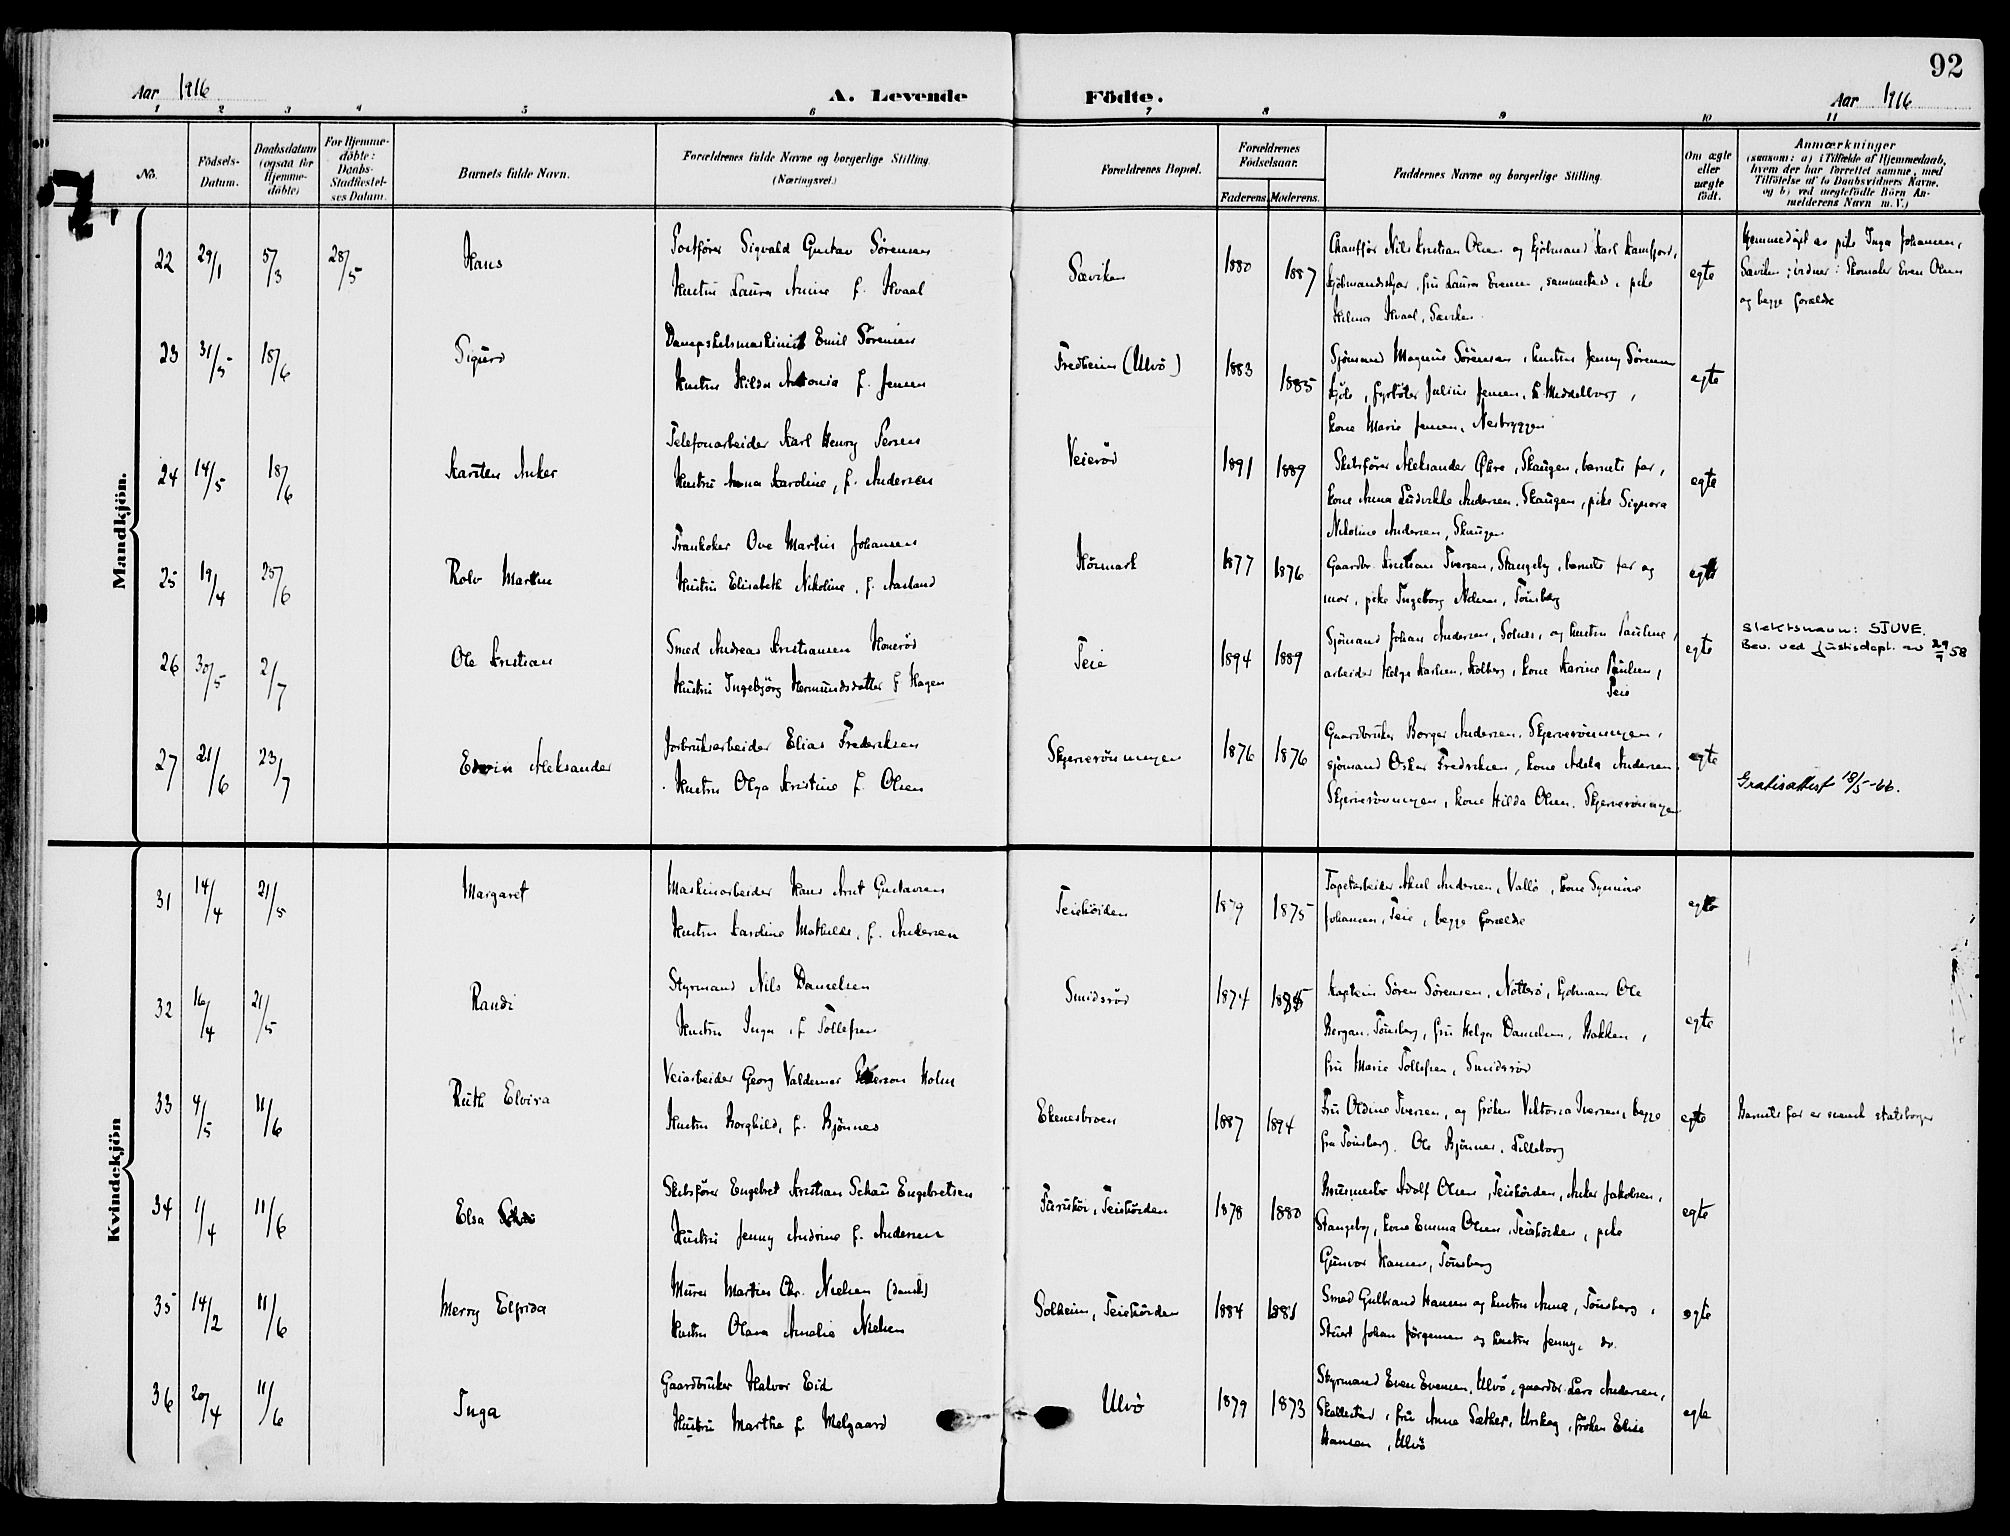 92
Aar 1916
A. Levende Födte.
Aar 1916
1 2 3 4 5 6 7 8 9 10 11
No.
Födsels-
Datum.
Daabsdatum
(ogsaa för
Hjemme-
döbte)
For Hjemme-
döbte:
Daabs-
Stadfæstel-
ses Datum.
Barnets fulde Navn.
Forældrenes fulde Navne og borgerlige Stilling.
(Næringsvei.)
Forældrenes Bopæl.
Forældrenes
Födselsaar.
Faderens. Moderens.
Faddernes Navne og borgerlige Stilling.
Om ægte
eller
uægte
født.
Anmærkninger
(saasom: a) i Tilfælde af Hjemmedaab,
hvem der har forrettet samme, med
Tilföielse af to Daabsvidners Navne.
og b) ved uægtefödte Börn An-
melderens Navn m. V.)
Mandkjön.
22 29/1 5/3 28/5 Hans
Sigvald Gustav Sørensen
Hustru Laura Amine f. Hvaal
Sæviken 1880 1887
Chauffør Nils Kristian Olsen og
fru Laura Evensen, sammesteds, pike
Hilma Hvaal, Sæviken
egte
Hjemmedøpt av pike Inga Johansen,
Sæviken; vidner: Skomaker Even Olsen
og begge forældre
23 31/5 18/6 Sigurd
Dampskibsmaskinist Emil Sörensen
Hustru Hilda Antonia f. Jensen
Fredheim (Ulvö) 1883 1885
Sjømand Magnus Sörensen, hustru Jenny Sörensen
Julius Jensen,
kone Marie Jensen, Nesbryggen
egte
24 14/5 18/6 Karsten Anker
Telefonarbeider Karl Henry
Hustru Anna Karoline, f. Andersen
Veierød 1891 1889
Skibsfører Aleksander Skaugen, barnets far,
kone Anna Andersen, Skaugen, pike Signora
Nikoline Andersen, Skaugen
egte
25 19/4 25/6 Rolv Martin
Trankoker Ove Martin Johansen
Hustru Elisabeth Nikoline, f. Aasland
1877 1876
Gaardbr. Kristian Iversen, Stangeby, barnets far og
mor, pike Ingeborg Nilsen, Tönsberg
egte
26 30/5 2/7 Ole Kristian
Smed Andreas Kristiansen
Hustru Ingebjörg Hermundsdatter f. Hagen
Teie 1894 1889
Sjømand Johan Andersen, Solnes, og hustru Pauline,
arbeider Helge Karlsen, Kolberg, kone Karine Paulsen,
Teie
egte
Slektsnavn: SJUVE.
Bev. ved Justisdept. av 29/9 58
27 21/6 23/7 Edwin Aleksander
Jordbruksarbeider Elias Frederiksen
Hustru Olga Kristine f. Olsen
Skjerverönningen 1876 1876
Gaardbruker Borger Andersen, Skjerverönningen,
sjömand Oskar Fredriksen, kone Adela Andersen
Skjerverönningen, kone Hilda Olsen, Skjerverönningen
egte
Gratisattest 18/5-66.
Kvindekjön
31 14/4 21/5 Margaret
Maskinarbeider Hans Arnt Gustavsen
Hustru Karoline Mathilde, f. Andersen
Teiehöiden 1879 1875
Tapetarbeider Aksel Andersen, Vallö, kone
Johansen, Teie, begge forældre
egte
32 16/4 21/5 Randi
Styrmand Nils Danielsen
Hustru Inga, f. Tollefsen
Smidsröd 1874
Kaptein Sören Sörensen, Nötterö, Ole
Bergan, Tönsberg, fru Helga Danielsen, Bakken,
fru Marie Tollefsen, Smidsröd
egte
33 4/5 11/6 Ruth Elvira
Veiarbeider Georg Valdemar Holm
Hustru Borghild, f. Bjönnes
Ekenesbroen 1887 1894
Fru Oldine Iversen, og fröken Viktoria Iversen, begge
fra Tönsberg. Ole Bjönnes, Lilleborg
egte
Barnets far er svensk statsborger
34 1/4 11/6 Elsa
Skibsfører Engebret Kristian Schau Engebretsen
Hustru Jenny Andrine f. Andersen
Teiehöiden 1878 1880
Adolf Olsen, Teiehöiden, Anker Jakobsen,
Stangeby, kone Emma Olsen, Teiehöiden, pike
Gunvor Hansen, Tönsberg
egte
35 14/2 11/6 Merry Elfrida
Murer Martin Chr. Nielsen (dansk)
Hustru Olava Amalie Nielsen
Solheim, Teiehöiden 1884 1881
Smed Gulbrand Hansen og hustru Anna, Tönsberg,
Stuert Johan Jörgensen og hustru Jenny, do.
egte
36 20/4 11/6 Inga
Gaardbruker Halvor Eid
Hustru Marthe f. Melgaard
Ulvö 1879 1873
Styrmand Even Evensen, Ulvö, gaardbr. Lars Andersen,
Skallestad, fru Anna Sæther, Urskog, fröken Elise
Hansen, Ulvö
egte